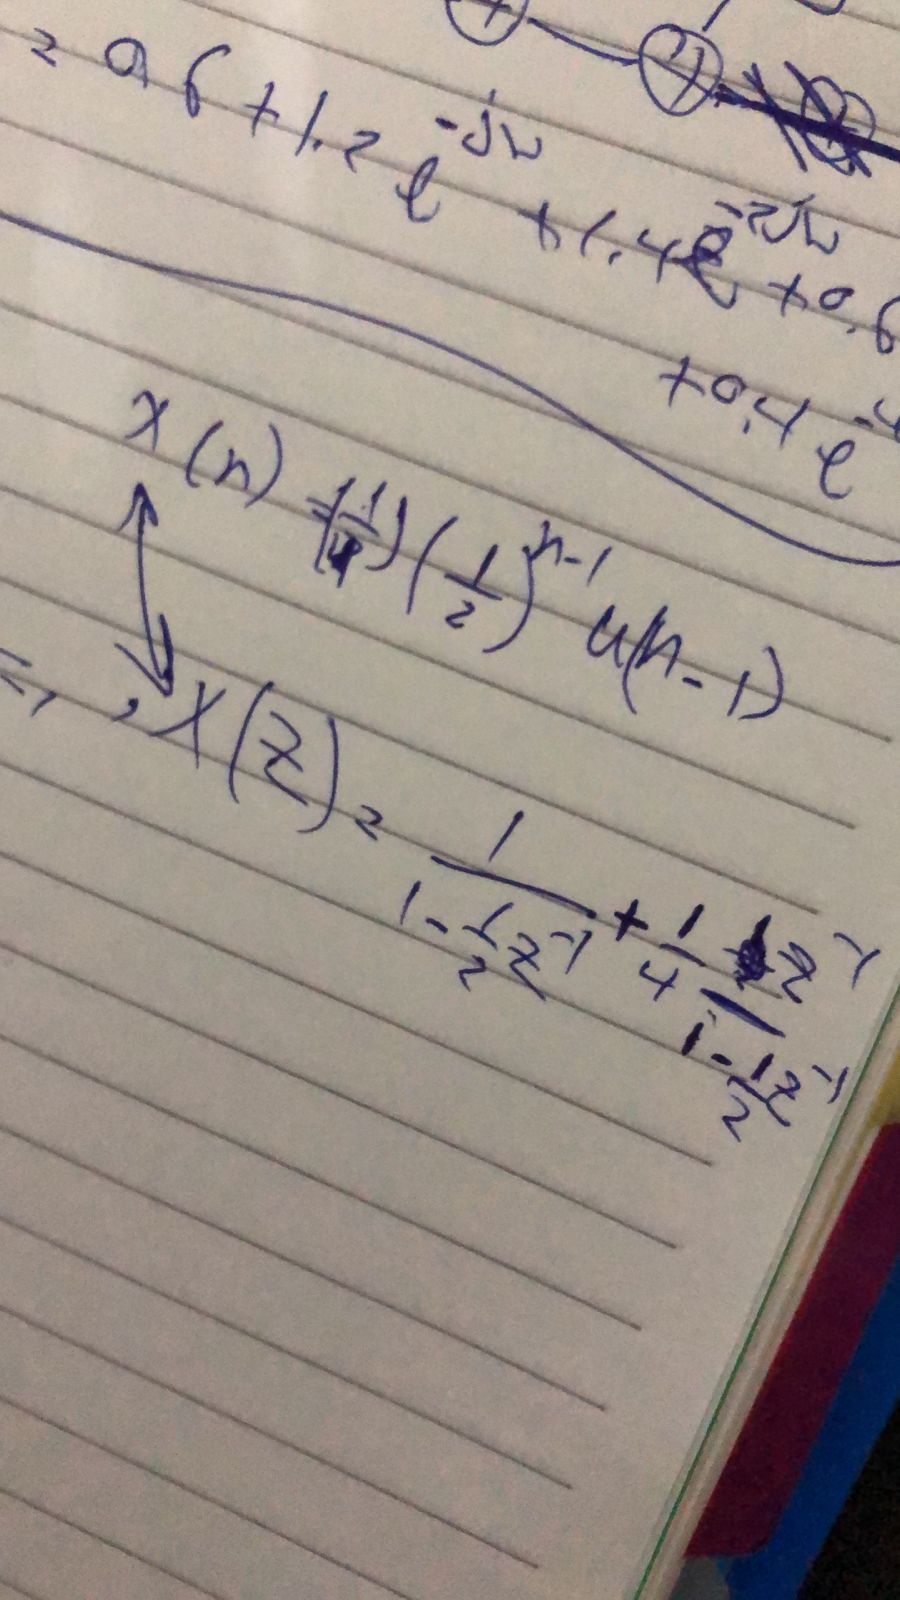 = 0.6 + 1.2 e^{-jω} + 1.4 e^{-2jω} + 0.6
+ 0.4 e^{-4
x(n) = (1/4) (1/2)^{n-1} u(n-1)
X(z) = 1/(1 - 1/2 z^{-1}) + 1/4 z^{-1}/(1 - 1/2 z^{-1})